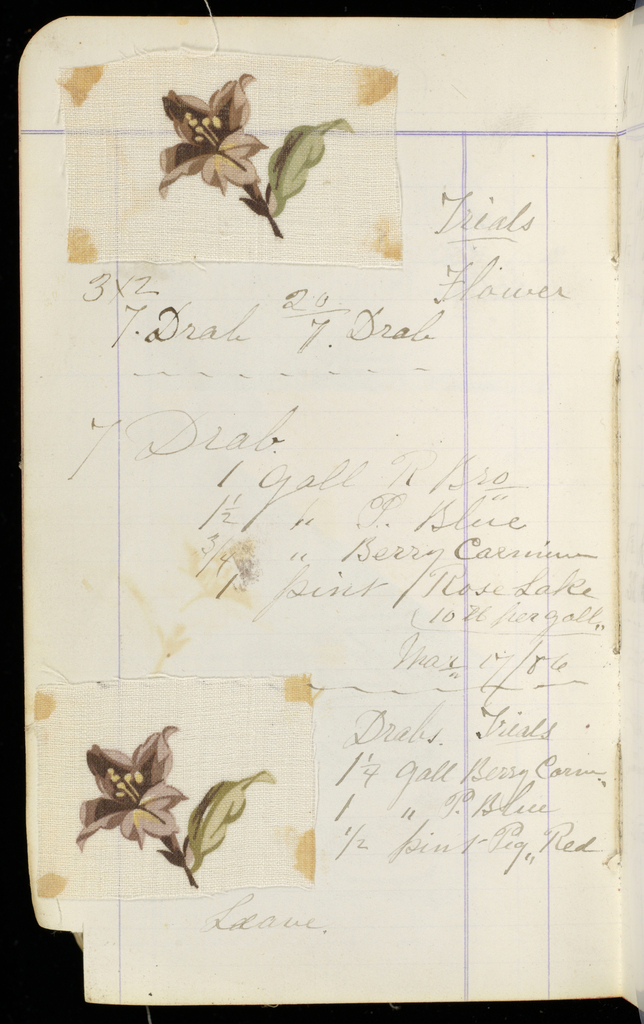 Trials
Flower
3x2
7. Drab 20/7. Drab
7 Drab.
1 Gall R Bro
1½ " P. Blue
3/4 " Berry Carmine
1 pint Rose Lake
(10 ℔ per gall"
Mar 17/86
Drabs. Trials
1¼ Gall Berry Carm"
1 " P. Blue
½ pint Pig" Red
Leave.